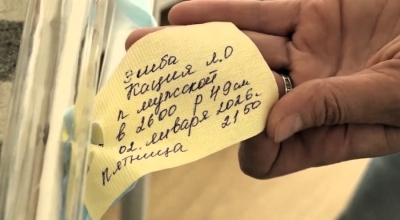 Эшба
Кация л.О
п мужской
в 2600 р 49 см
02. января 2026г.
Пятница 21 50